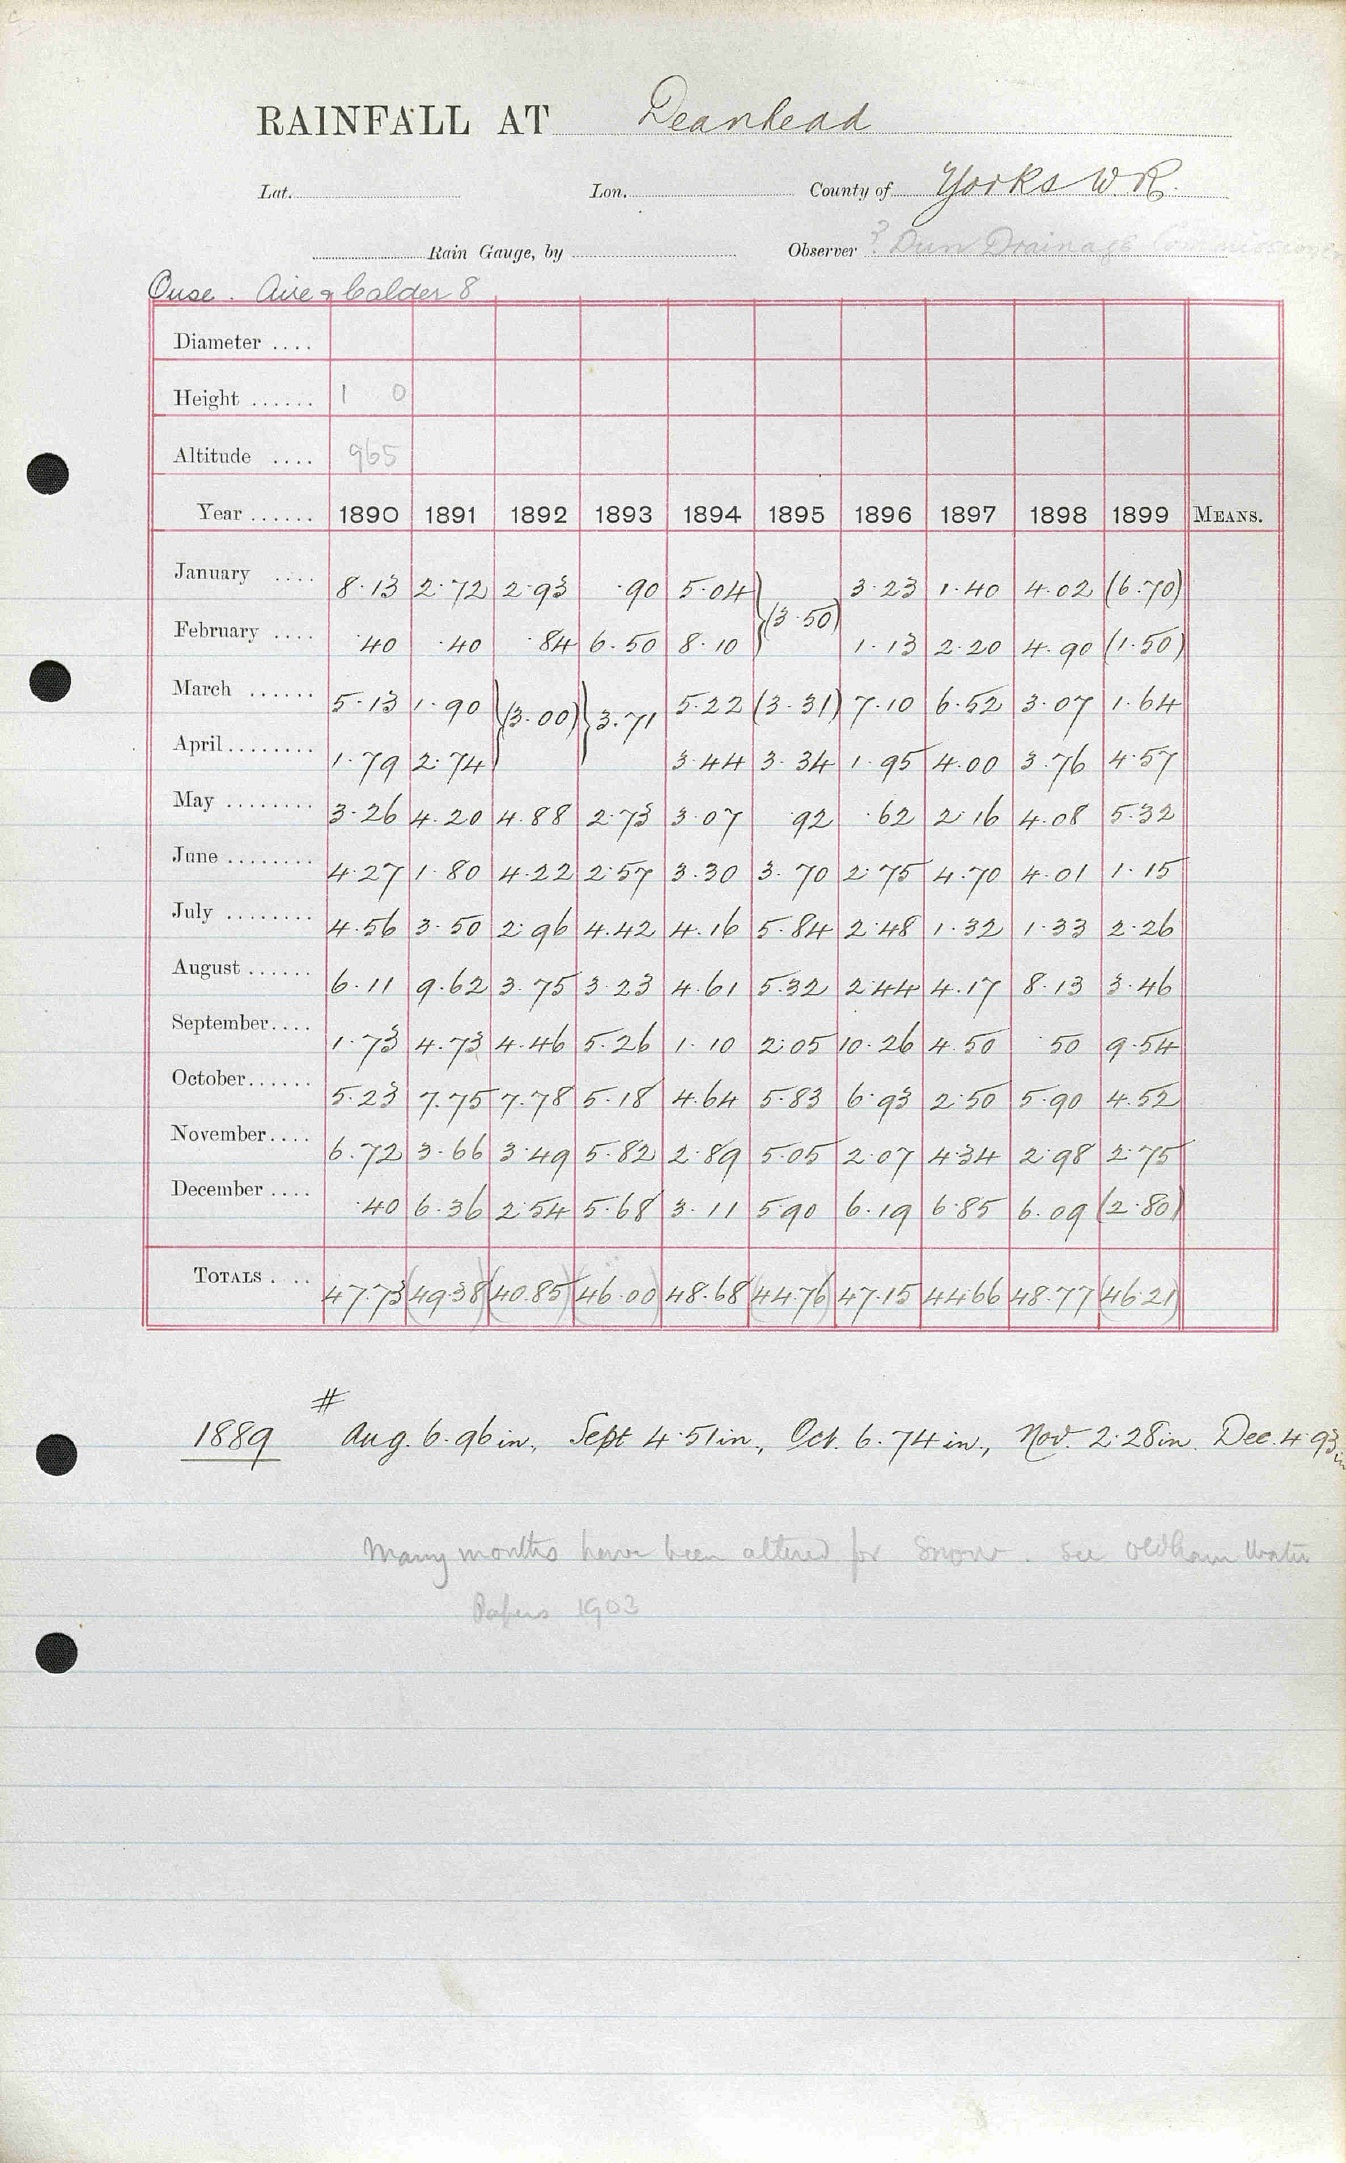 RAINFALL AT Deanhead
Lat. Lon. County of Yorks W.R.
Rain Gauge, by Observer ? Dun Drainage Commissioners
Ouse. Aire & Calder 8
Diameter ....
Height ...... 1 0
Altitude .... 965
Year ...... 1890 1891 1892 1893 1894 1895 1896 1897 1898 1899 MEANS.
January .... 8.13 2.72 2.93 .90 5.04 3.23 1.40 4.02 (6.70)
} (3.50)
February .... .40 .40 .84 6.50 8.10 1.13 2.20 4.90 (1.50)
March ...... 5.13 1.90 } (3.00) } 3.71 5.22 (3.31) 7.10 6.52 3.07 1.64
April ........ 1.79 2.74 3.44 3.34 1.95 4.00 3.76 4.57
May ........ 3.26 4.20 4.88 2.73 3.07 .92 .62 2.16 4.08 5.32
June ........ 4.27 1.80 4.22 2.57 3.30 3.70 2.75 4.70 4.01 1.15
July ........ 4.56 3.50 2.96 4.42 4.16 5.84 2.48 1.32 1.33 2.26
August ...... 6.11 9.62 3.75 3.23 4.61 5.32 2.44 4.17 8.13 3.46
September.... 1.73 4.73 4.46 5.26 1.10 2.05 10.26 4.50 .50 9.54
October...... 5.23 7.75 7.78 5.18 4.64 5.83 6.93 2.50 5.90 4.52
November.... 6.72 3.66 3.49 5.82 2.89 5.05 2.07 4.34 2.98 2.75
December .... .40 6.36 2.54 5.68 3.11 5.90 6.19 6.85 6.09 (2.80)
TOTALS . .. 47.73 (49.38) (40.85) (46.00) 48.68 (44.76) 47.15 44.66 48.77 (46.21)
#
1889 Aug. 6.96 in., Sept 4.51 in., Oct. 6.74 in., Nov. 2.28 in. Dec. 4.93 in
Many months have been altered for snow. see Oldham Water
Papers 1903